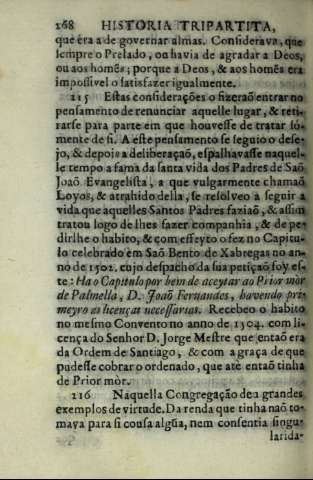 268 HISTORIA TRIPARTITA,
que era a de governar almas. Considerava, que
sempre o Prelado, ou havia de agradar a Deos,
ou aos homẽs; porque a Deos, & aos homẽs era
impossivel o satisfazer igualmente.
215 Estas considerações o fizeraõ entrar no
pensamento de renunciar aquelle lugar, & reti-
rarse para parte em que houvesse de tratar só-
mente de si. A este pensamento se seguio o dese-
jo, & depois a deliberaçaõ, espalhavasse naquel-
le tempo a fama da santa vida dos Padres de Saõ
Joaõ Evangelista, a que vulgarmente chamaõ
Loyos, & atrahido della, se resolveo a seguir a
vida que aquelles Santos Padres faziaõ, & assim
tratou logo de lhes fazer companhia, & de pe-
dirlhe o habito, & com effeyto o fez no Capitu-
lo celebrado em Saõ Bento de Xabregas no an-
no de 1502. cujo despacho da sua petiçaõ foy es-
te: Ha o Capitulo por bem de aceytar ao Prior mòr
de Palmella, D. Joaõ Fernandes, havendo pri-
meyro as licenças necessarias. Recebeo o habito
no mesmo Convento no anno de 1504. com li-
cença do Senhor D. Jorge Mestre que entaõ era
da Ordem de Santiago, & com a graça de que
pudesse cobrar o ordenado, que até entaõ tinha
de Prior mòr.
216 Naquella Congregaçaõ deu grandes
exemplos de virtude. Da renda que tinha naõ to-
mava para si cousa algũa, nem consentia singu-
larida-